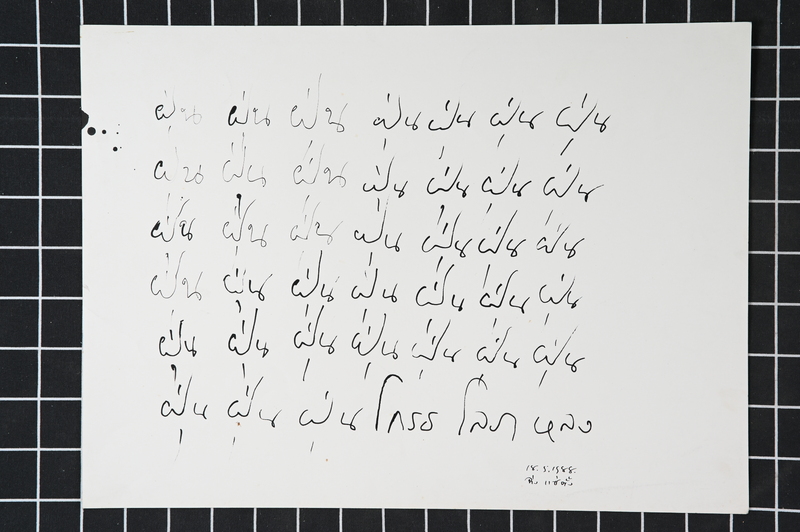 ฝุ่น ฝุ่น ฝุ่น ฝุ่น ฝุ่น ฝุ่น ฝุ่น
ฝุ่น ฝุ่น ฝุ่น ฝุ่น ฝุ่น ฝุ่น ฝุ่น
ฝุ่น ฝุ่น ฝุ่น ฝุ่น ฝุ่น ฝุ่น ฝุ่น
ฝุ่น ฝุ่น ฝุ่น ฝุ่น ฝุ่น ฝุ่น ฝุ่น
ฝุ่น ฝุ่น ฝุ่น ฝุ่น ฝุ่น ฝุ่น ฝุ่น
ฝุ่น ฝุ่น ฝุ่น โกรธ โลภ หลง
แซ่ตั้ง